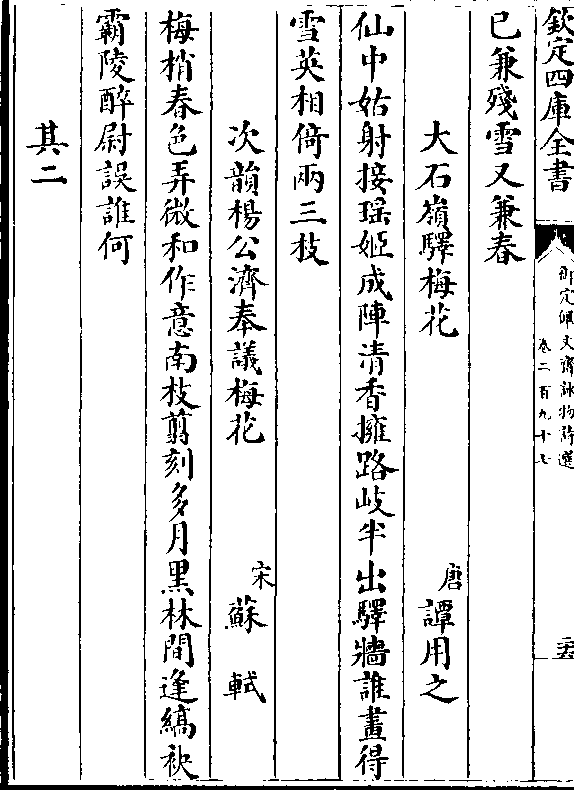 欽定四庫全書
御定佩文齋詠物詩選
卷二百九十七
二五
已兼殘雪又兼春
大石嶺驛梅花
唐 譚用之
仙中姑射接瑶姬成陣清香擁路岐半出驛牆誰畫得
雪英相倚兩三枝
次韻楊公濟奉議梅花
宋 蘇軾
梅梢春色弄微和作意南枝剪刻多月黑林間逢縞袂
霸陵醉尉誤誰何
其二